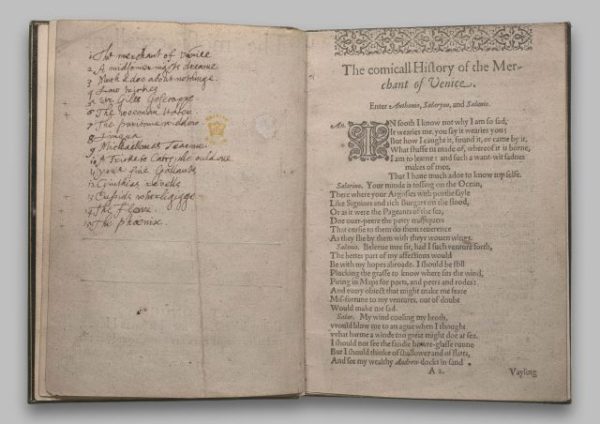 1 The merchant of Venice
2 A midsomer nights dreame
3 Much adoe about nothinge
4
5 Sir Giles Goscappe
6 The woeman Hater
7 The puritaine widdow
8 Lingua
9 Michaelmas Tearme
10 A Trick to Catch the ould one
11 your five Gallants
12 Cynthias Revells
13 Cupids whirligigge
14 The Fleire
15 The Phoenix
The comicall History of the Mer-
chant of Venice.
Enter Anthonio, Salaryno, and Salanio.
An. IN sooth I know not why I am so sad,
It wearies me, you say it wearies you;
But how I caught it, found it, or came by it,
What stuffe tis made of, whereof it is borne,
I am to learne: and such a want-wit sadnes
makes of mee,
That I haue much adoe to know my selfe.
Salarino. Your minde is tossing on the Ocean,
There where your Argosies with portlie sayle
Like Signiors and rich Burgars on the flood,
Or as it were the Pageants of the sea,
Doe ouer-peere the petty traffiquers
That cursie to them do them reuerence
As they flie by them with theyr wouen wings.
Salanio. Beleeue mee sir, had I such venture forth,
The better part of my affections would
Be with my hopes abroade. I should be still
Plucking the grasse to know where sits the wind,
Piring in Maps for ports, and peers and rodes:
And euery obiect that might make me feare
Mis-fortune to my ventures, out of doubt
Would make me sad.
Salar. My wind cooling my broth,
would blow me to an ague when I thought
what harme a winde too great might doe at sea.
I should not see the sandie howre-glasse runne
But I should thinke of shallowes and of flats,
And see my wealthy Andrew docks in sand
A 2. Vayling